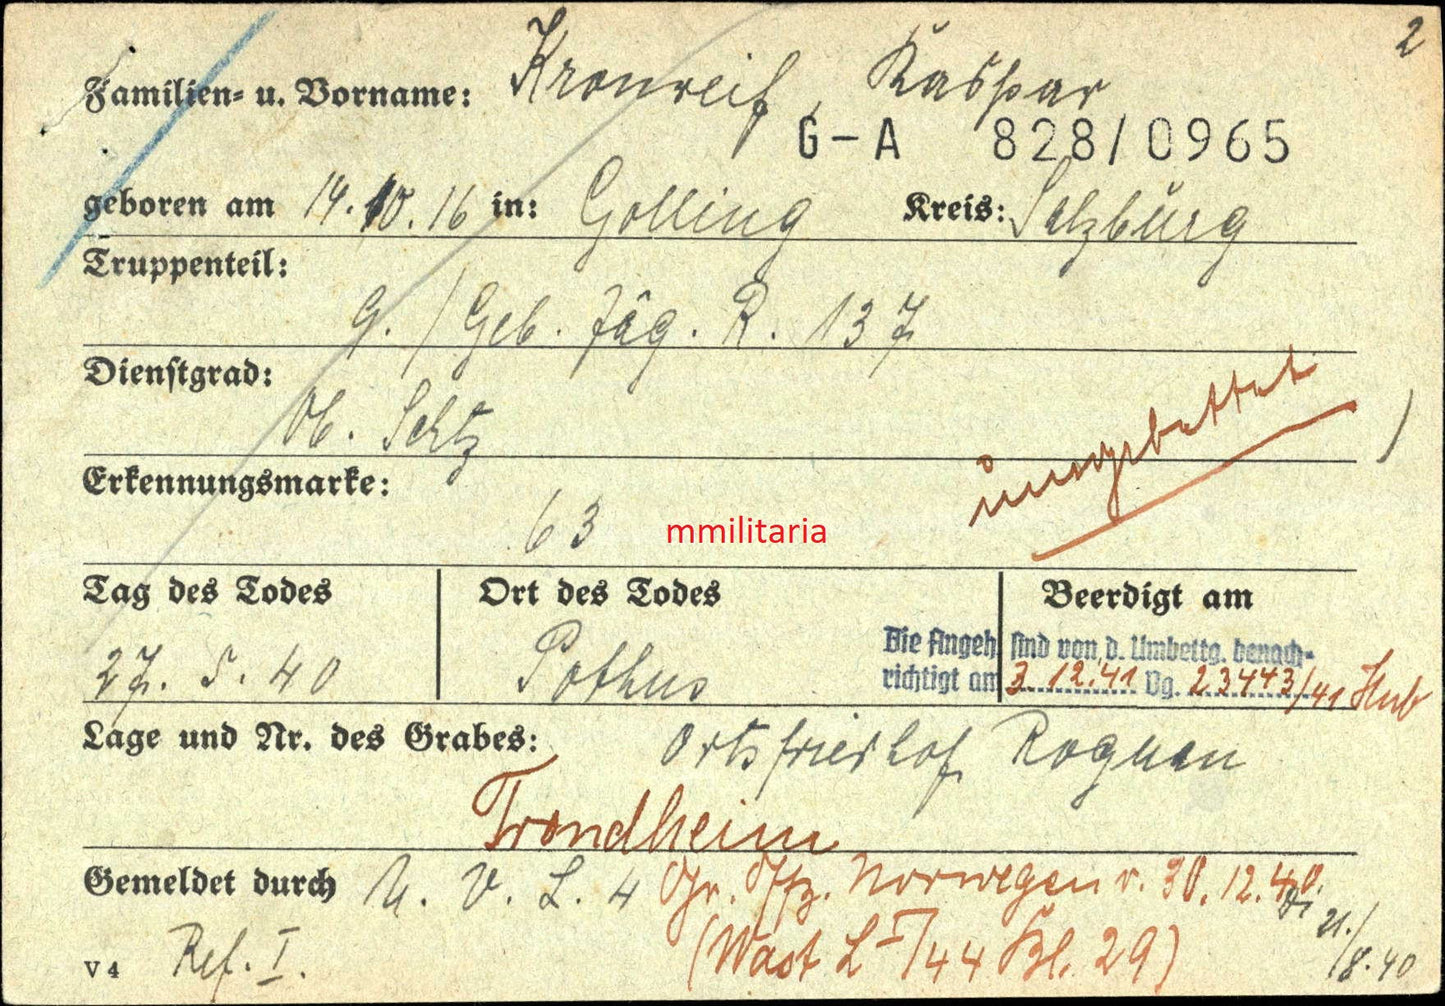 2
Familien- u. Vorname: Kronreif, Kaspar
G-A 828/0965
geboren am 14.10.16 in: Golling Kreis: Salzburg
Truppenteil:
9./Geb. Jäg. R. 137
Dienstgrad:
Ob. Schtz
Erkennungsmarke:
63
umgebettet
mmilitaria
Tag des Todes Ort des Todes Beerdigt am
27. 5. 40 Pothus
Die Angeh. sind von d. Umbettg. benach-
richtigt am 3.12.41 Vg. 23443/41 Hub
Lage und Nr. des Grabes: Ortsfriedhof Rognan
Trondheim
Gemeldet durch U. V. L. 4 Gr. Offz. Norwegen v. 30.12.40.
(Wast L I/44 Bl. 29)
21./8.40
V 4 Ref. I.